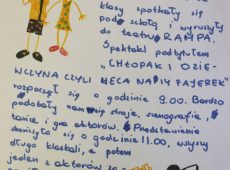 klasy spotkały się
pod szkołą i wyruszyły
do teatru RAMPA.
Spektakl pod tytułem
„CHŁOPAK I DZIE-
WCZYNA CZYLI HECA NA 14 FAJEREK"
rozpoczął się o godzinie 9.00. Bardzo
podobały nam się stroje, scenografia,
tańce i gra aktorów. Przedstawienie
skończyło się o godzinie 11.00, wszyscy
długo klaskali, a potem
jeden z aktorów